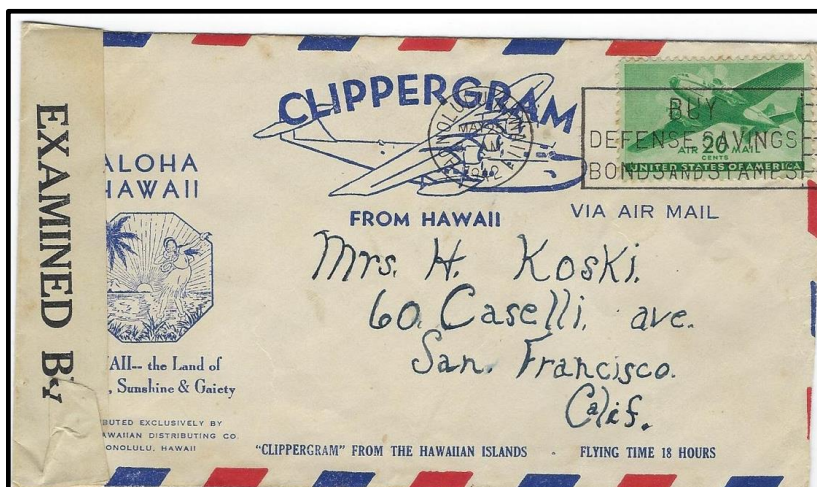 EXAMINED By
CLIPPERGRAM
HONOLULU
1942
BUY
DEFENSE SAVINGS
BONDS AND STAMPS
AIR 20 MAIL
CENTS
UNITED STATES OF AMERICA
ALOHA
HAWAII
FROM HAWAII
VIA AIR MAIL
Mrs. H. Koski.
60. Caselli. ave.
San. Francisco.
Calif.
AII-- the Land of
, Sunshine & Gaiety
BUTED EXCLUSIVELY BY
AWAIIAN DISTRIBUTING CO.
ONOLULU, HAWAII
"CLIPPERGRAM" FROM THE HAWAIIAN ISLANDS - FLYING TIME 18 HOURS